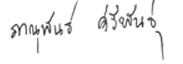 ภาณุพันธ์ ศรีพันธุ์